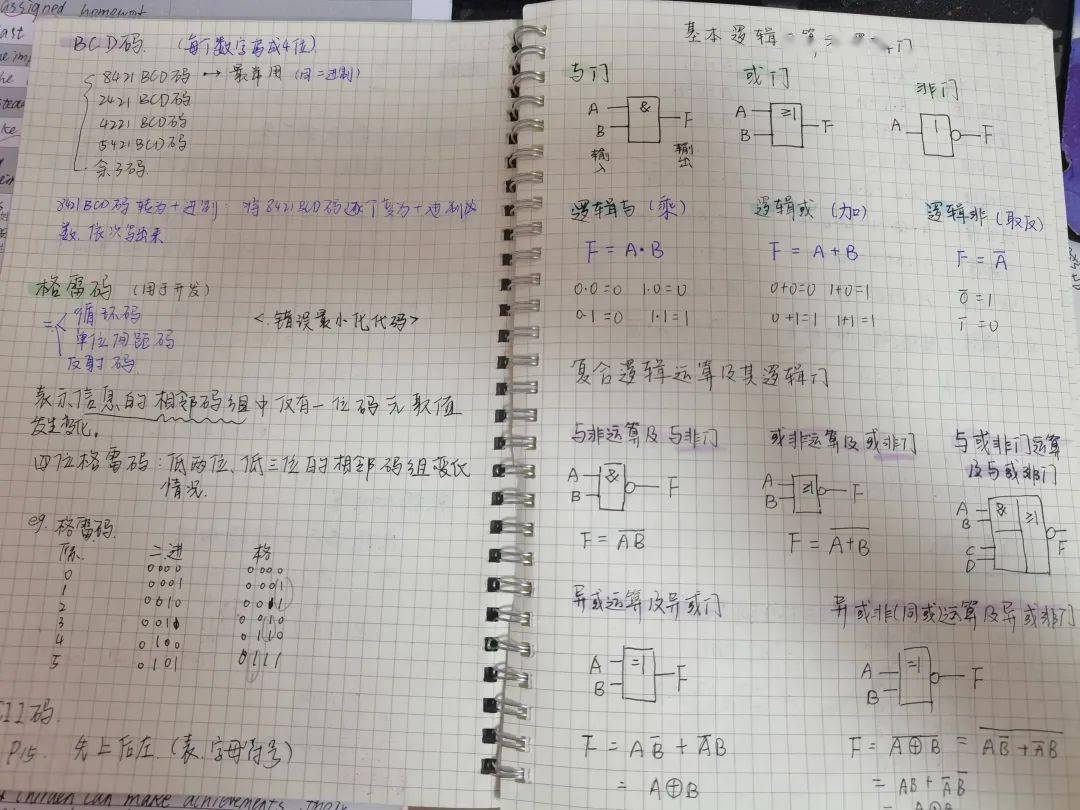 assigned homework
BCD码. (每个数字写成4位)
8421 BCD码 → 最常用 (同二进制)
2421 BCD码
4221 BCD码
5421 BCD码
余3码.
8421BCD码转为十进制: 将8421BCD码逐个变为十进制
数.依次写出来
格雷码 (用于开发)
= 循环码
单位间距码
反射码
<错误最小化代码>
表示信息的相邻码组中仅有一位码元取值
发生变化.
四位格雷码:低两位、低三位的相邻码组变化
情况.
eg. 格雷码.
二进 格
0 0000 0000
1 0001 0001
2 0010 0011
3 0011 0010
4 0100 0110
5 0101 0111
II码.
P15. 先上后左.(表.字母符号)
children can make achievements
基本逻辑
与门 或门 非门
A B & F
输入 输出
A B ≥1 F
A 1 F
逻辑与(乘) 逻辑或(加) 逻辑非(取反)
F = A·B F = A + B F = A̅
0·0=0 1·0=0 0+0=0 1+0=1 0̅=1
0·1=0 1·1=1 0+1=1 1+1=1 1̅=0
复合逻辑运算及其逻辑门
与非运算及与非门 或非运算及或非门 与或非门运算
及与或非门
A B & F
A B ≥1 F
A B C D & ≥1 F̅
F = A̅B̅ F = A̅+̅B̅
异或运算及异或门 异或非(同或)运算及异或非门
A B =1 F
A B =1 F
F = AB̅ + A̅B F = A̅⊕̅B̅ = A̅B̅ ̅+̅ A̅B̅
= A⊕B = AB + A̅B̅